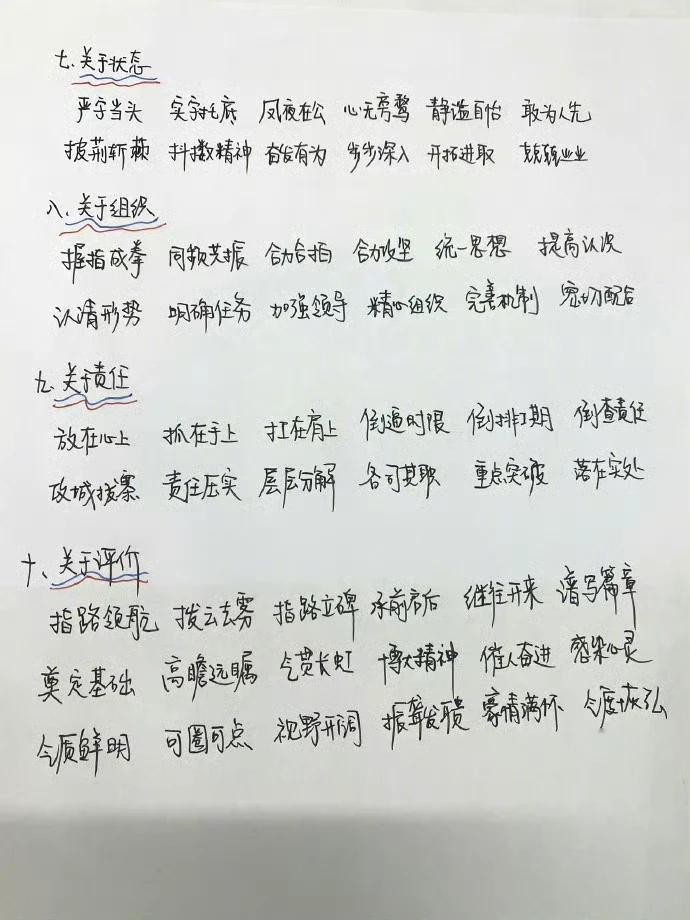 七、关于状态
严字当头 实字托底 夙夜在公 心无旁骛 静谧自怡 敢为人先
披荆斩棘 抖擞精神 奋发有为 步步深入 开拓进取 兢兢业业
八、关于组织
握指成拳 同频共振 合力合拍 合力攻坚 统一思想 提高认次
认清形势 明确任务 加强领导 精心组织 完善机制 密切配合
九、关于责任
放在心上 抓在手上 扛在肩上 倒逼时限 倒排工期 倒查责任
攻城拔寨 责任压实 层层分解 各司其职 重点突破 落在实处
十、关于评价
指路领航 拨云去雾 指路立碑 承前启后 继往开来 谱写篇章
奠定基础 高瞻远瞩 气贯长虹 博大精神 催人奋进 感染心灵
个质鲜明 可圈可点 视野开阔 振聋发聩 豪情满怀 气度恢弘